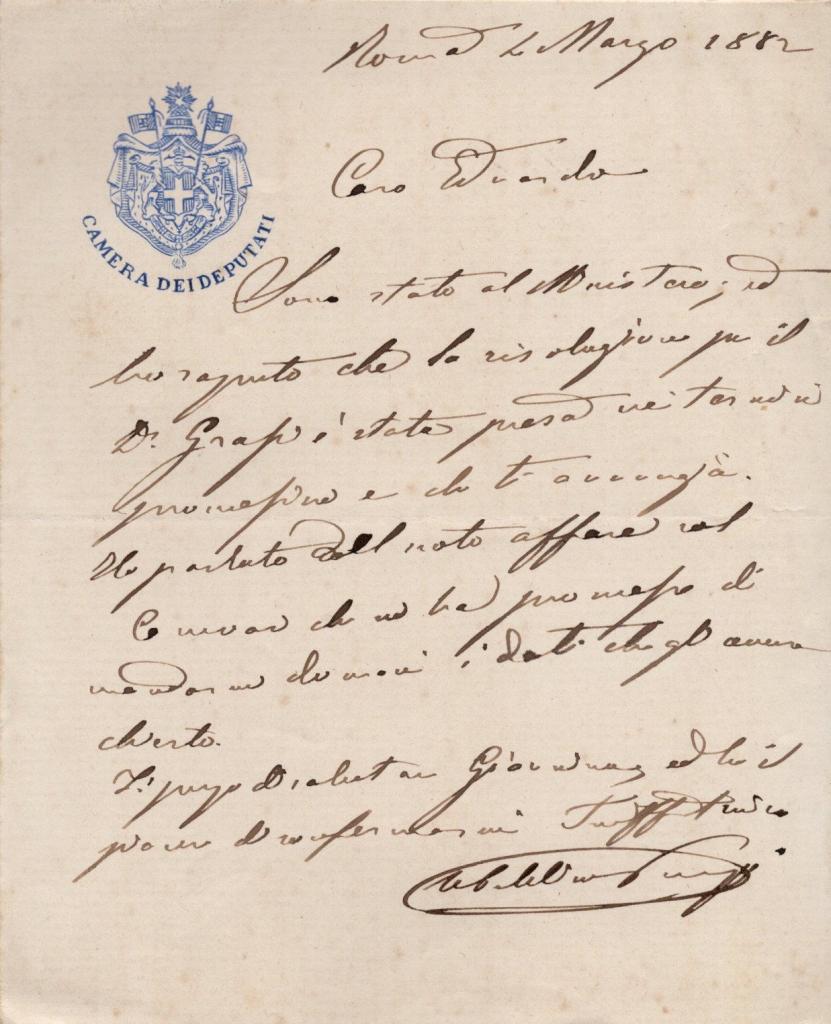 Roma 2 Marzo 1882
CAMERA DEI DEPUTATI
Caro Eduardo
Sono stato al Ministero, ed
ho saputo che la risoluzione per il
Dr. Grassi è stata presa nei termini
promessimi e che ti annunziai.
Ho parlato dell noto affare col
che mi ha promesso di
mandarmi domani i dati che gli aveva
chiesto.
Ti prego di salutar Giovannina, ed ho il
piacere di confermarmi Tuo aff amico
Ubaldino Peruzzi